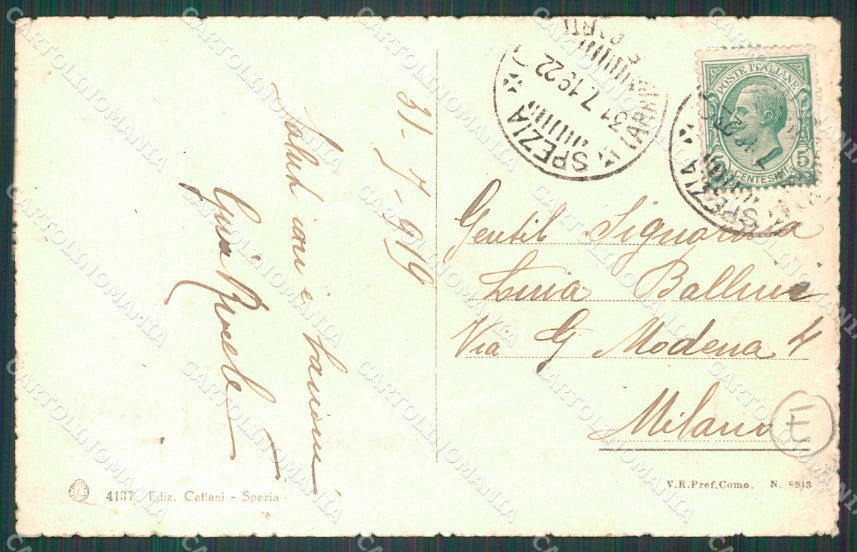 31-7-919
Saluti cari e bacioni
Gina
Gentil Signorina
Luisa Ballini
Via G Modena 4
Milano
E
POSTE ITALIANE
5 5
CENTESIMI
SPEZIA
31.7.1922
(ARRIVI
SPEZIA
4137 Ediz. Cattani - Spezia
V.R.Pref.Como. N. 8943
CARTOLINOMANIA